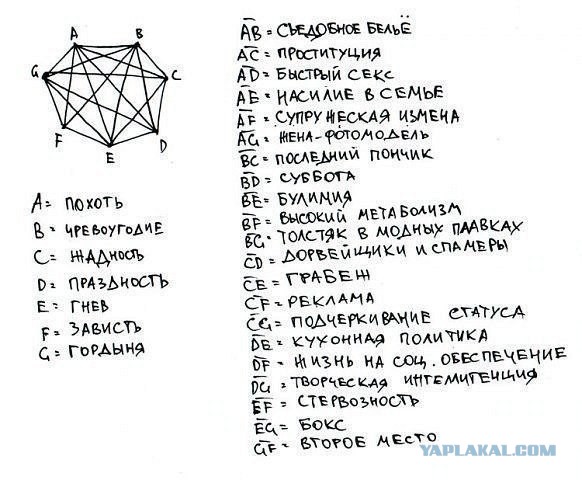 A B
G C
F D
E
A = ПОХОТЬ
B = ЧРЕВОУГОДИЕ
C = ЖАДНОСТЬ
D = ПРАЗДНОСТЬ
E = ГНЕВ
F = ЗАВИСТЬ
G = ГОРДЫНЯ
AB = СЪЕДОБНОЕ БЕЛЬЁ
AC = ПРОСТИТУЦИЯ
AD = БЫСТРЫЙ СЕКС
AE = НАСИЛИЕ В СЕМЬЕ
AF = СУПРУЖЕСКАЯ ИЗМЕНА
AG = ЖЕНА-ФОТОМОДЕЛЬ
BC = ПОСЛЕДНИЙ ПОНЧИК
BD = СУББОТА
BE = БУЛИМИЯ
BF = ВЫСОКИЙ МЕТАБОЛИЗМ
BG = ТОЛСТЯК В МОДНЫХ ПЛАВКАХ
CD = ДОРВЕЙЩИКИ И СПАМЕРЫ
CE = ГРАБЕЖ
CF = РЕКЛАМА
CG = ПОДЧЕРКИВАНИЕ СТАТУСА
DE = КУХОННАЯ ПОЛИТИКА
DF = ЖИЗНЬ НА СОЦ. ОБЕСПЕЧЕНИЕ
DG = ТВОРЧЕСКАЯ ИНТЕЛИГЕНЦИЯ
EF = СТЕРВОЗНОСТЬ
EG = БОКС
GF = ВТОРОЕ МЕСТО
YAPLAKAL.COM